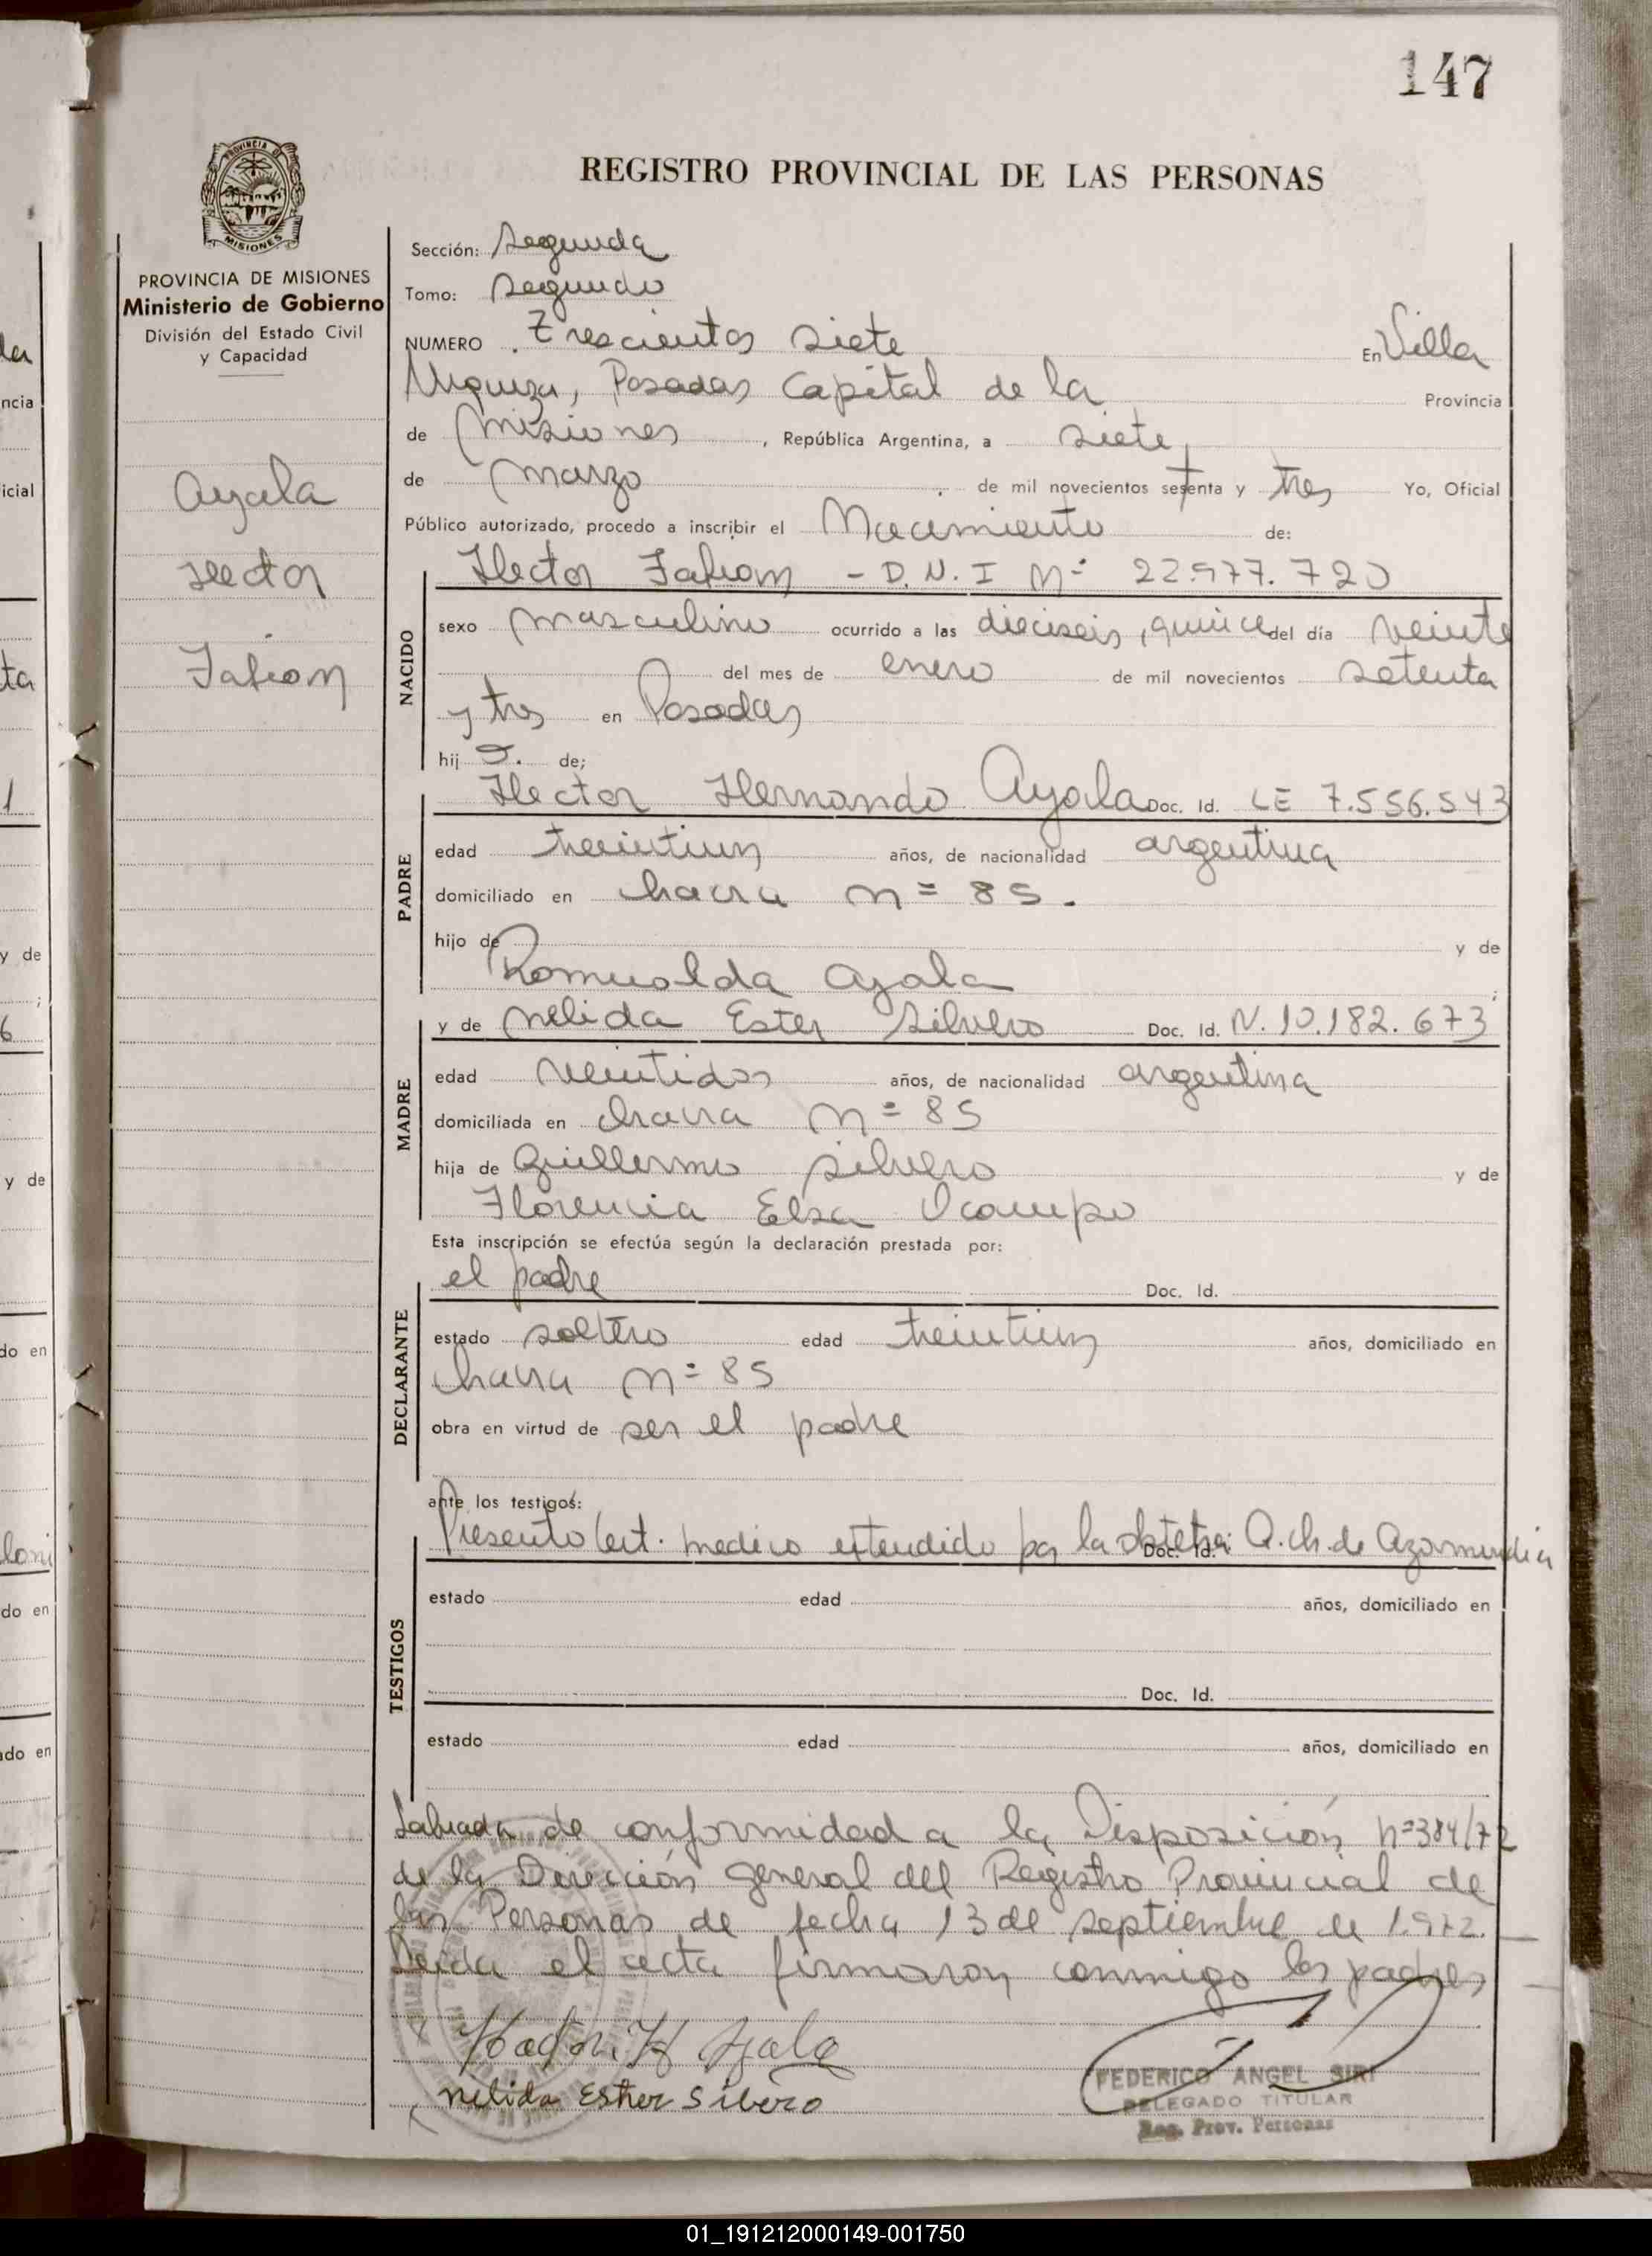 147
PROVINCIA DE
MISIONES
REGISTRO PROVINCIAL DE LAS PERSONAS
PROVINCIA DE MISIONES
Ministerio de Gobierno
División del Estado Civil
y Capacidad
Ayala
Hector
Fabian
Sección: Segunda
Tomo: Segundo
NUMERO Trescientos siete En Villa
Urquiza, Posadas Capital de la Provincia
de Misiones, República Argentina, a siete
de marzo de mil novecientos setenta y tres Yo, Oficial
Público autorizado, procedo a inscribir el Nacimiento de:
Hector Fabian - D.N.I Nº 22.977.720
NACIDO
sexo masculino ocurrido a las dieciseis, quince del día veinte
del mes de enero de mil novecientos setenta
y tres en Posadas
hij o. de;
Hector Hernando Ayala Doc. Id. LE 7.556.543
PADRE
edad treintiun años, de nacionalidad argentina
domiciliado en chacra nº 85.
hijo de y de
Romualda Ayala
y de Nelida Ester Silvero Doc. Id. N. 10.182.673
MADRE
edad veintidos años, de nacionalidad argentina
domiciliada en chacra nº 85
hija de Guillermo Silvero y de
Florencia Elsa Ocampo
Esta inscripción se efectúa según la declaración prestada por:
el padre Doc. Id.
DECLARANTE
estado soltero edad treintiun años, domiciliado en
chacra nº 85
obra en virtud de ser el padre
ante los testigos:
Presento Cert. medico extendido por la obstetra: Doc. Id. Q. Ch. de Azarmendia
TESTIGOS
estado edad años, domiciliado en
Doc. Id.
estado edad años, domiciliado en
Labrada de conformidad a la Disposición nº 384/72
de la Dirección General del Registro Provincial de
las Personas de fecha 13 de septiembre de 1.972.
Leida el acta firmaron conmigo los padres
H Ayala
Nelida Esther Silvero
FEDERICO ANGEL SIRI
DELEGADO TITULAR
Reg. Prov. Personas
01_191212000149-001750